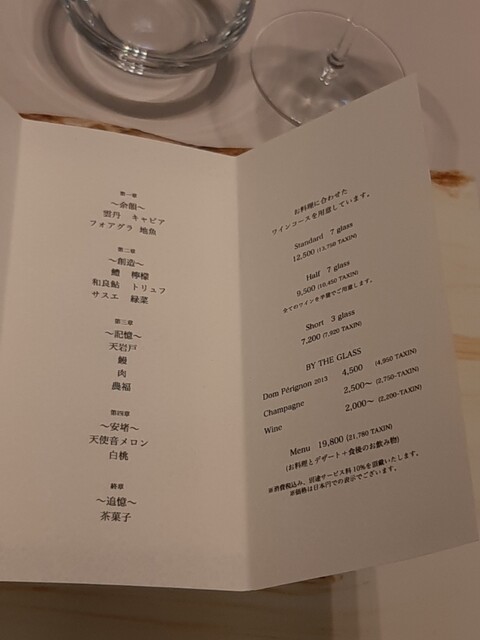 第一章
～余韻～
雲丹　キャビア
フォアグラ 地魚
第二章
～創造～
鱧　檸檬
和良鮎　トリュフ
サスエ　緑菜
第三章
～記憶～
天岩戸
鰻
肉
第四章
～安堵～
天使音メロン
白桃
終章
～追憶～
茶菓子
お料理に合わせた
ワインコースを用意しています。
Standard 7 glass
12,500 (13,750 TAXIN)
Half 7 glass
9,500 (10,450 TAXIN)
全てのワインを半量でご用意します。
Short 3 glass
7,200 (7,920 TAXIN)
BY THE GLASS
Dom Pérignon 2013 4,500 (4,950 TAXIN)
Champagne 2,500～ (2,750~TAXIN)
Wine 2,000～ (2,200~TAXIN)
Menu 19,800 (21,780 TAXIN)
(お料理とデザート＋食後のお飲み物)
※消費税込み、別途サービス料 10%を頂戴いたします。
※価格は日本円での表示でございます。